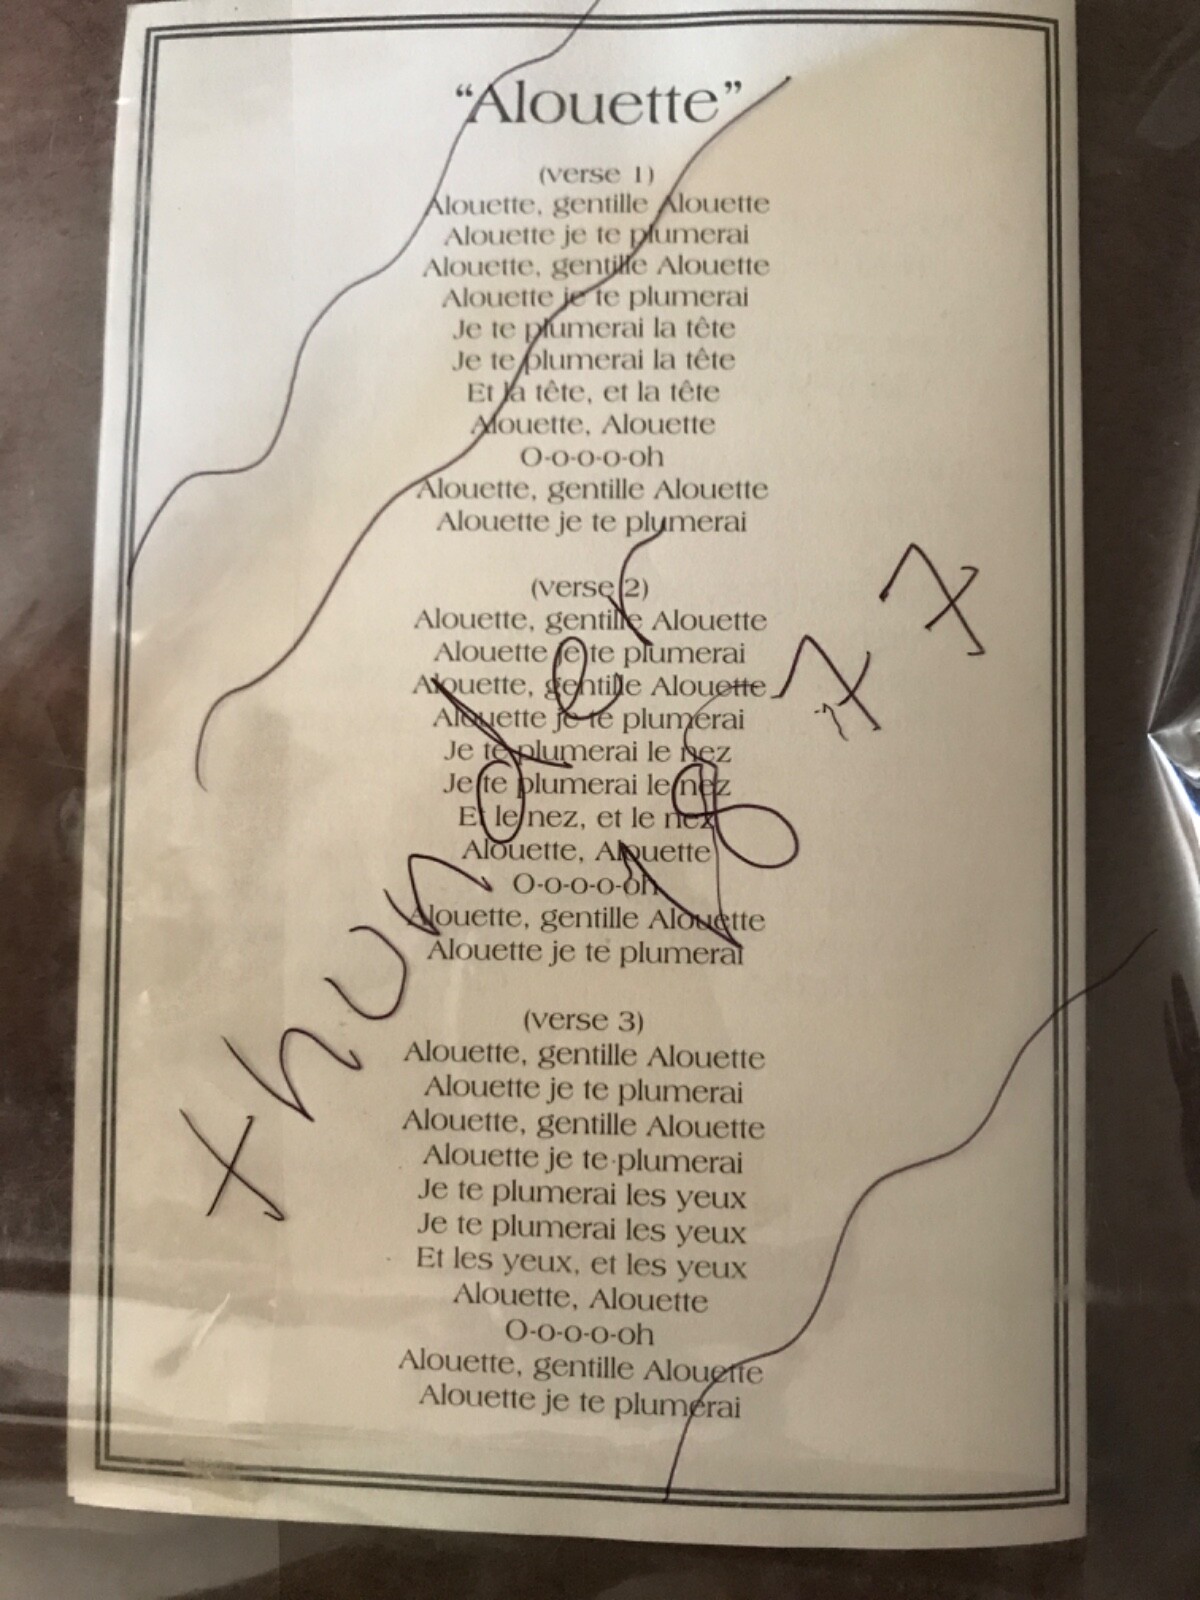 “Alouette”
(verse 1)
Alouette, gentille Alouette
Alouette je te plumerai
Alouette, gentille Alouette
Alouette je te plumerai
Je te plumerai la tête
Je te plumerai la tête
Et la tête, et la tête
Alouette, Alouette
O-o-o-o-oh
Alouette, gentille Alouette
Alouette je te plumerai
(verse 2)
Alouette, gentille Alouette
Alouette je te plumerai
Alouette, gentille Alouette
Alouette je te plumerai
Je te plumerai le nez
Je te plumerai le nez
Et le nez, et le nez
Alouette, Alouette
O-o-o-o-oh
Alouette, gentille Alouette
Alouette je te plumerai
(verse 3)
Alouette, gentille Alouette
Alouette je te plumerai
Alouette, gentille Alouette
Alouette je te plumerai
Je te plumerai les yeux
Je te plumerai les yeux
Et les yeux, et les yeux
Alouette, Alouette
O-o-o-o-oh
Alouette, gentille Alouette
Alouette je te plumerai
thunder
1877